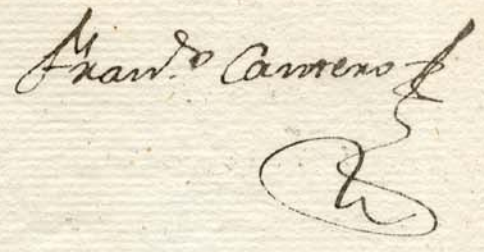 Fran.co Cantero